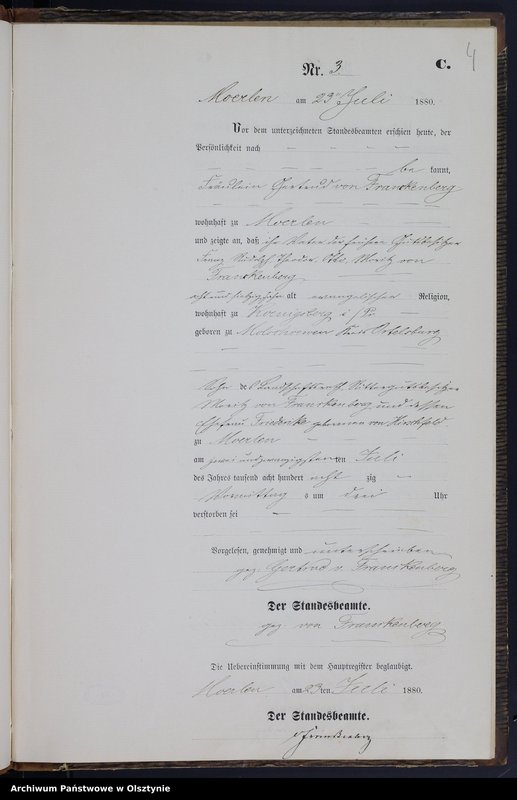 4
Nr. 3. C.
Moerlen am 23ten Juli 1880.
Vor dem unterzeichneten Standesbeamten erschien heute, der
Persönlichkeit nach
be kannt,
Fräulein Gertrud von Franckenberg
wohnhaft zu Moerlen
und zeigte an, daß ihr Vater der frühere Gutsbesitzer
Franz Rudolph Theodor Otto Moritz von
Franckenberg
acht und sechzig Jahre alt evangelischer Religion,
wohnhaft zu Koenigsberg i/Pr
geboren zu Kreis Ortelsburg
Sohn des Landschaftsrath, Rittergutsbesitzer
Moritz von Franckenberg und dessen
Ehefrau Friederike geborenen von Hirschfeld
zu Moerlen
am zwei und zwanzigsten ten Juli
des Jahres tausend acht hundert acht zig
Vormittag s um drei Uhr
verstorben sei
Vorgelesen, genehmigt und unterschrieben
gez. Gertrud v. Franckenberg
Der Standesbeamte.
gez von Franckenberg
Die Uebereinstimmung mit dem Hauptregister beglaubigt.
Moerlen am 23 ten Juli 1880.
Der Standesbeamte.
v Franckenberg
Archiwum Państwowe w Olsztynie